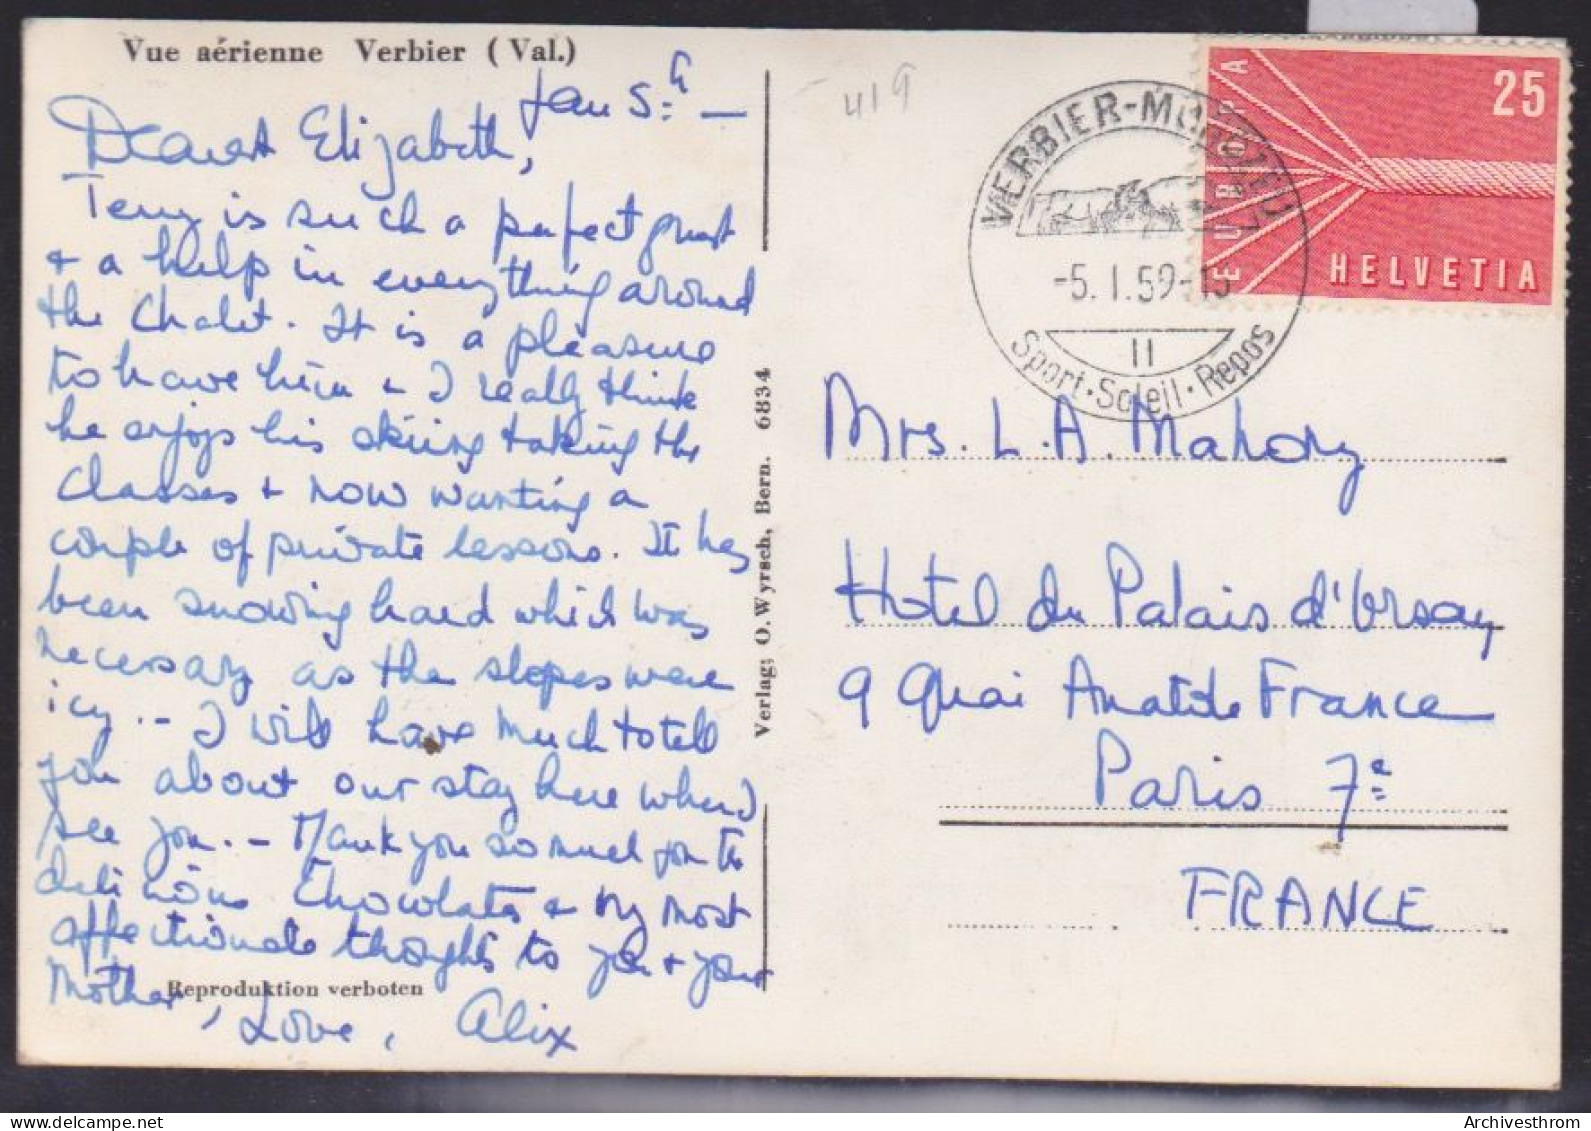 Vue aérienne Verbier (Val.)
Jan 5.th —
Dearest Elizabeth,
Terry is such a perfect guest
& a help in everything around
the Chalet. It is a pleasure
to have him & I really think
he enjoys his skiing taking the
classes & now wanting a
couple of private lessons. It has
been snowing hard which was
necessary as the slopes were
icy. – I will have much to tell
you about our stay here when I
see you. – Thank you so much for the
delicious chocolates & my most
affectionate thoughts to you & your
Mother, Love, Alix
Reproduktion verboten
Verlag: O. Wyrsch, Bern. 6834
419
VERBIER-
-5.1.59-15
II
Sport·Soleil·Repos
EUROPA
25
HELVETIA
Mrs. L. A. Mahony
Hotel du Palais d'Orsay
9 Quai Anatole France
Paris 7e
FRANCE
Archivesthrom